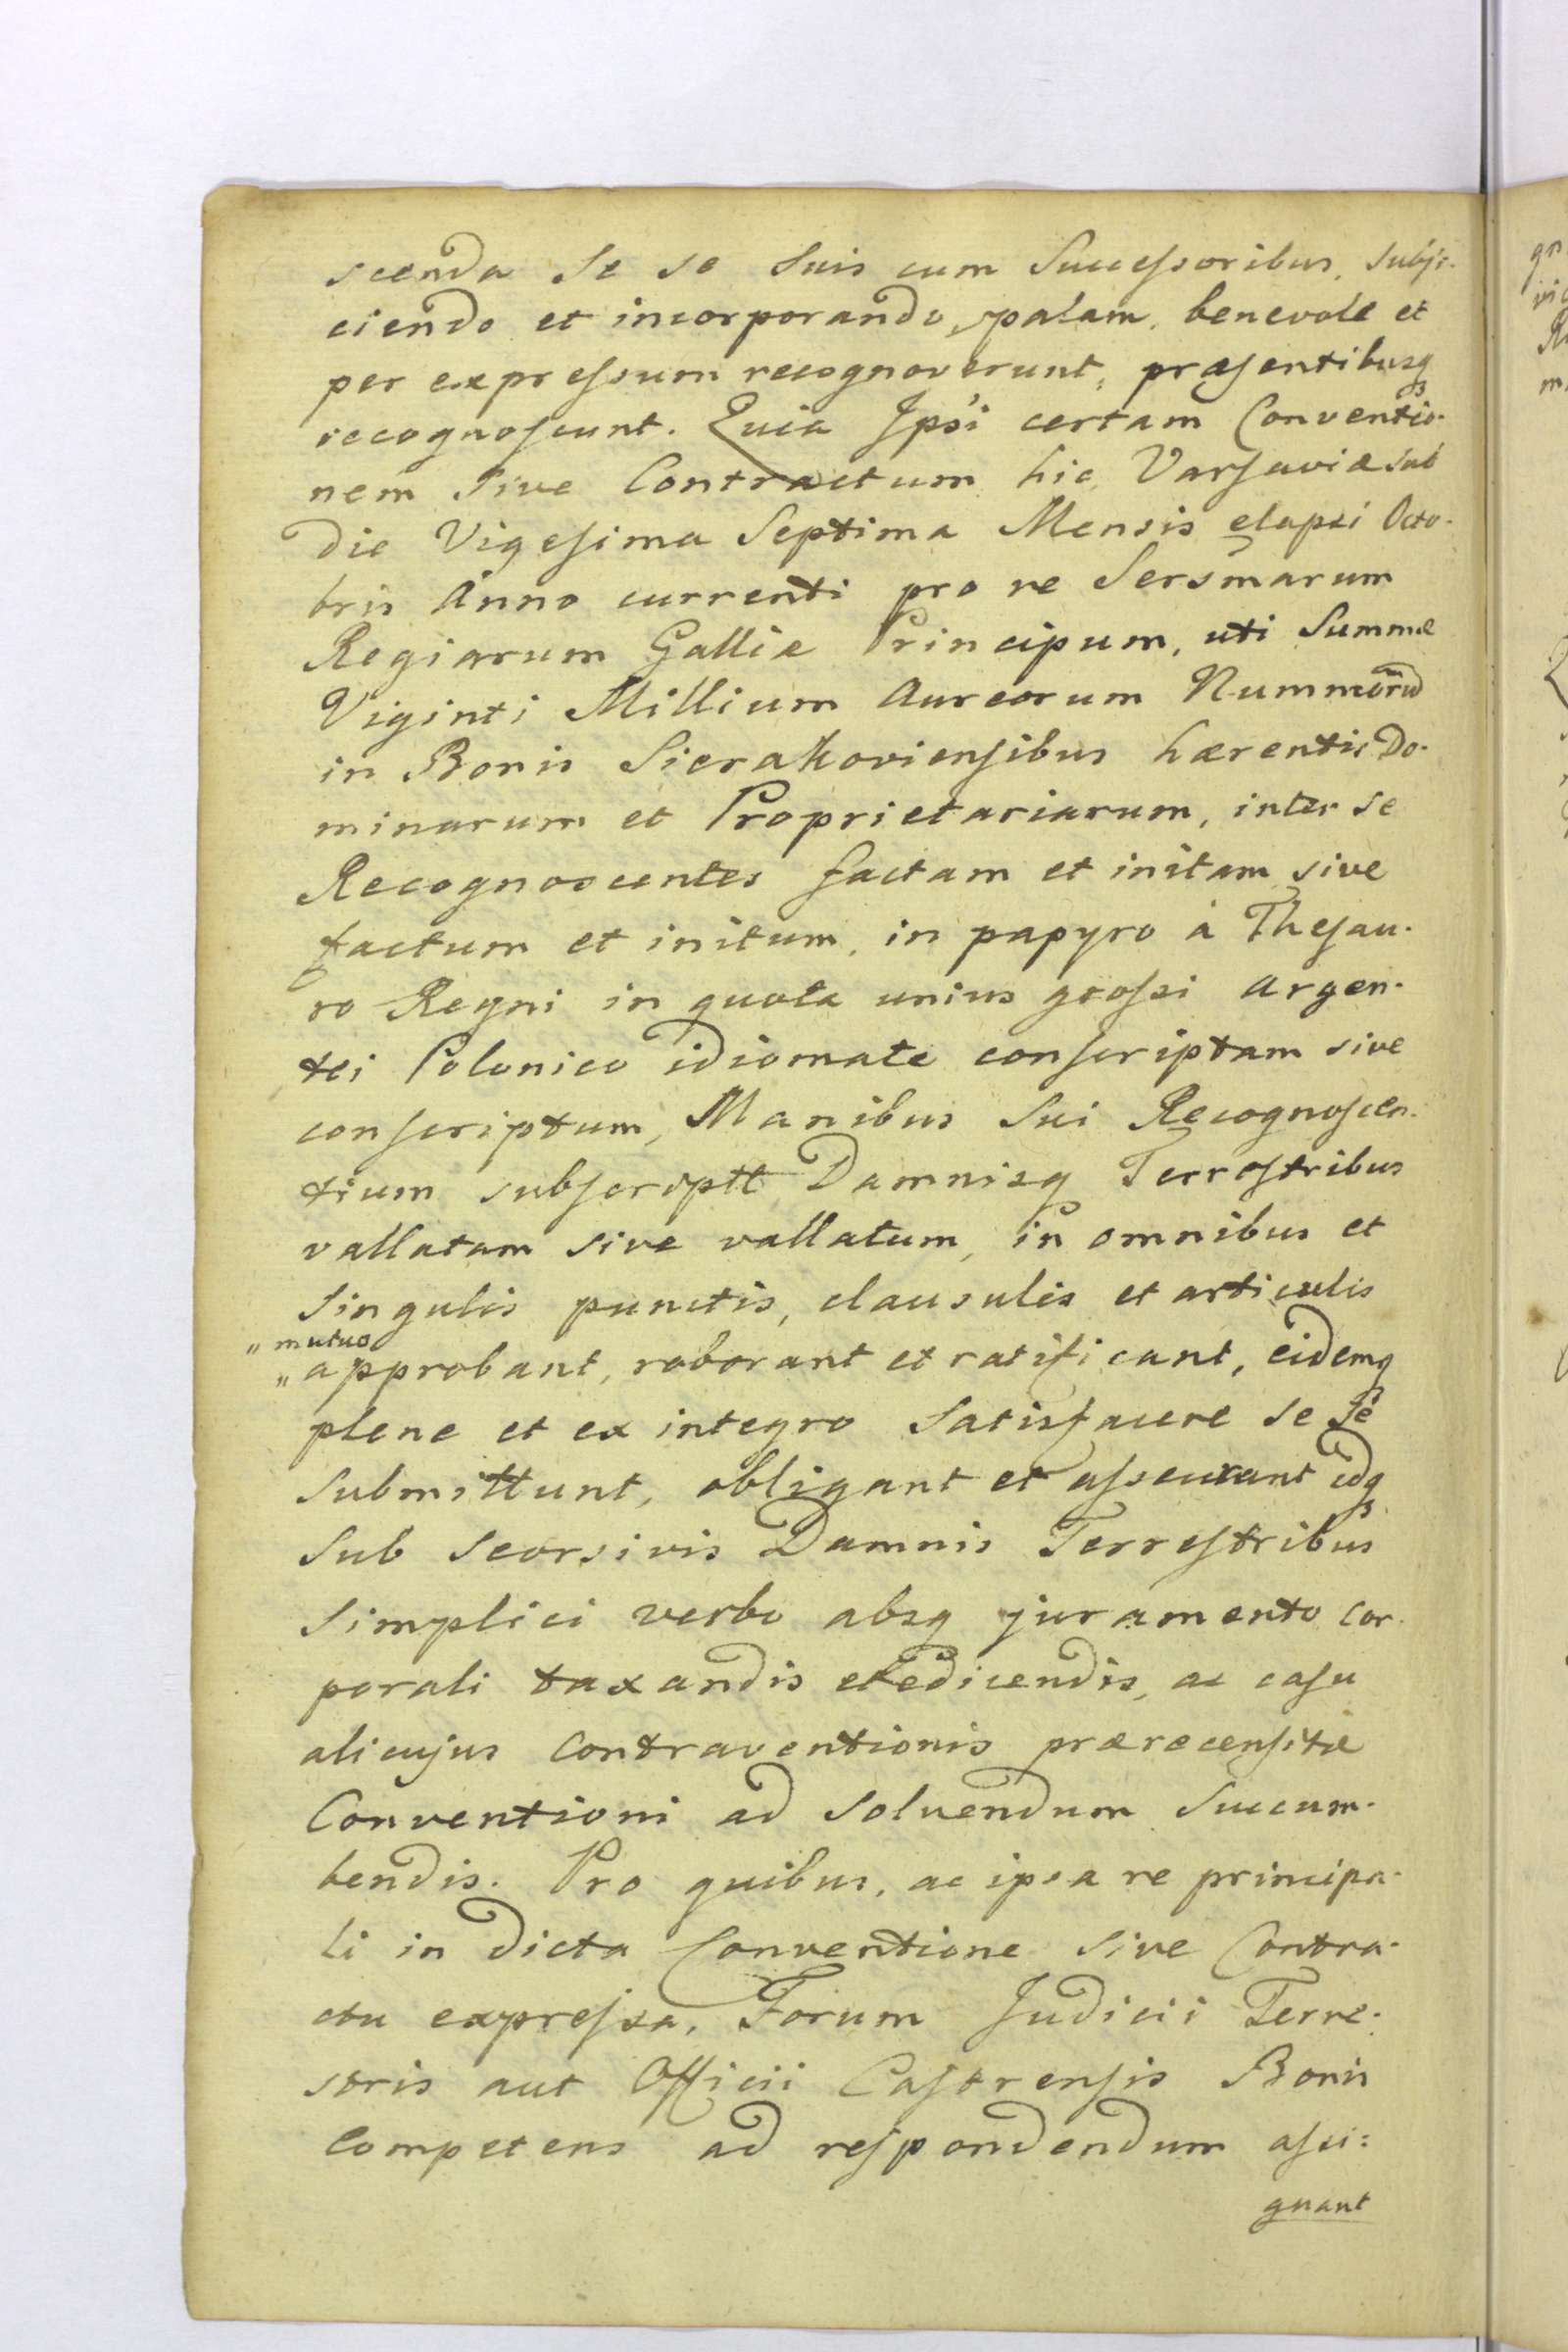 scenda Se se Suis cum Successoribus, subji-
ciendo et incorporando, palam, benevole et
per expressum recognoverunt, præsentibusq
recognoscunt. Quia Ipsi certam Conventio-
nem sive Contractum hic Varsaviæ sub
die Vigesima Septima Mensis elapsi Octo-
bris Anno currenti pro re Sersmarum
Regiarum Galliæ Principum, uti Summæ
Viginti Millium Aureorum Nummorū
in Bonis Sierakoviensibus hærentis Do-
minarum et Proprietariarum, inter se
Recognoscentes factam et initam sive
factum et initum, in papyro à Thesau-
ro Regni in quota unius grossi argen-
tei Polonico idiomate conscriptam sive
conscriptum, Manibus Sui Recognoscen-
tium subscriptt Damnisq Terrestribus
vallatam sive vallatum, in omnibus et
Singulis punctis, clausulis et articulis
" mutuo
" approbant, roborant et ratificant, eidemq
plene et ex integro Satisfacere se se
Submittunt, obligant et assecurant idq
Sub seorsivis Damnis Terrestribus
Simplici verbo absq juramento cor-
porali taxandis et edicendis, ac casu
alicujus Contraventionis prærecensitæ
Conventioni ad Solvendum Succum-
bendis. Pro quibus, ac ipsa re principa-
li in dicta Conventione sive Contra-
ctu expressa, Forum Judicii Terre-
stris aut Officii Castrensis Bonis
Competens ad respondendum assi:
gnant